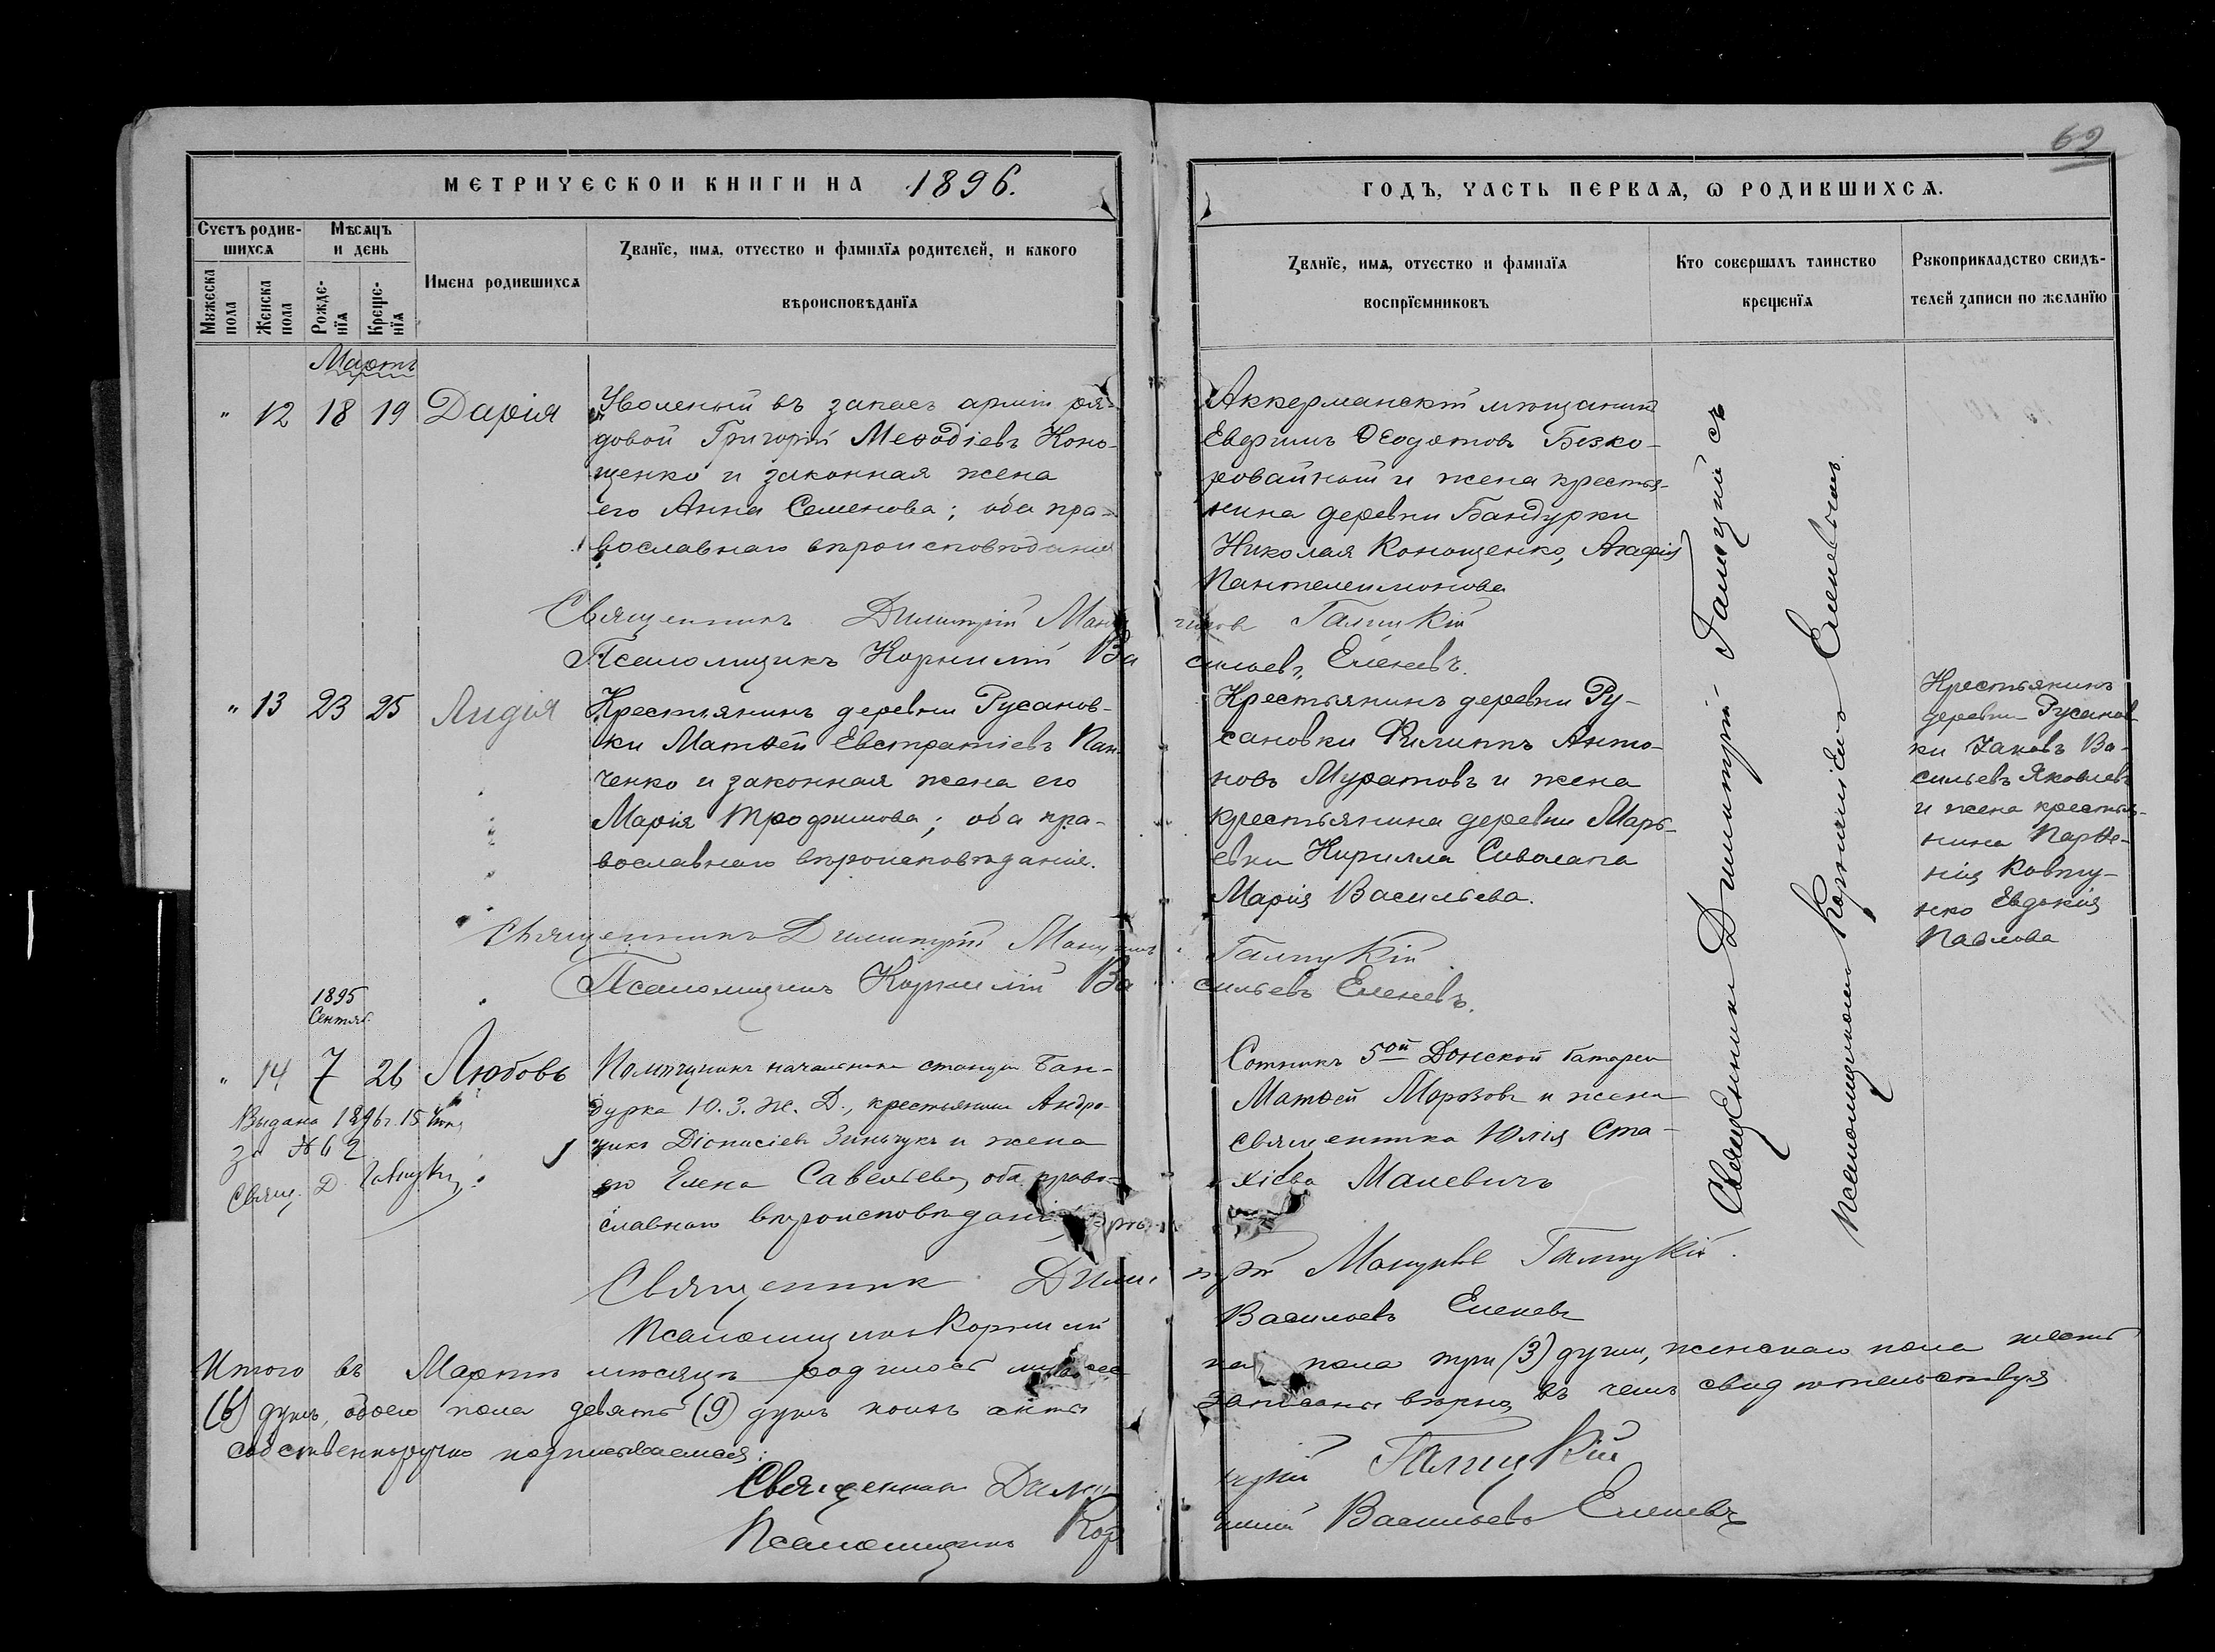 69
МЕТРИЧЕСКОЙ КНИГИ НА 1896.
ГОДЪ, ЧАСТЬ ПЕРВАѦ, Ѡ РОДИВШИХСѦ.
Счетъ родив-
шихсѧ
Мѣсѧцъ
и день
Мꙋжеска пола
Женска пола
Рожде-
нїѧ
Креще-
нїѧ
Имена родившихсѧ
Званїе, имѧ, отчество и фамилїѧ родителей, и какого
вѣроисповѣданїѧ
Званїе, имѧ, отчество и фамилїѧ
воспрїемниковъ
Кто совершалъ таинство
крещенїѧ
Рꙋкоприкладство свидѣ-
телей записи по желанїю
Мартъ
" 12 18 19 Дарія
Уволеный въ запасъ арміи ря-
довой Григорій Меѳодіевъ Коно-
щенко и законная жена
его Анна Семенова; оба пра-
вославнаго вѣроисповѣданія
Аккерманскій мѣщанинъ
Евфимъ Ѳеодотовъ Безко-
ровайный и жена крестья-
нина деревни Бандурки
Николая Конощенко, Агафія
Пантелеимонова
Священникъ Димитрій Галицкій
Псаломщикъ Корнилій Васильевъ Еленевъ.
" 13 23 25 Лидія
Крестьянинъ деревни Русанов-
ки Матѳей Евстратіевъ Пан-
ченко и законная жена его
Марія Трофимова; оба пра-
вославнаго вѣроисповѣданія.
Крестьянинъ деревни Ру-
сановки Филиппъ Анто-
новъ Муратовъ и жена
крестьянина деревни Марь-
евки Кирилла Сиволапа
Марія Васильева.
Крестьянинъ
деревни Русанов-
ки Іаковъ Ва-
сильевъ Яковлевъ
и жена крестья-
нина Парѳе-
нія Ковту-
нко Евдокія
Павлова
Священникъ Димитрій Галицкій
Псаломщикъ Корнилій Васильевъ Еленевъ.
1895
Сентяб.
" 14 7 26 Любовь
Помощникъ начальника станціи Бан-
дурка Ю. З. Ж. Д., крестьянинъ Андро-
никъ Діонисіевъ Зинчукъ и жена
его Елена Савельева, оба право-
славнаго вѣроисповѣданія
Сотникъ 5ой Донской батареи
Матѳей Морозовъ и жена
священника Юлія Ста-
хіева Малевичъ
Выдано 1896г. 15
за № 62
Свящ. Д. Галицкій
Священникъ Димитрій Галицкій съ
псаломщикомъ Корниліемъ Еленевымъ.
Священникъ Димитрій Галицкій.
Псаломщикъ Корнилій Васильевъ Еленевъ
Итого въ Мартѣ мѣсяцѣ родилось мужеска пола три (3) души, женскаго пола шесть
(6) душъ, обоего пола девять (9) душъ коихъ акты записаны вѣрно, въ чемъ свидѣтельствуя
собственноручно подписываемся:
Священникъ Димитрій Галицкій
Псаломщикъ Корнилій Васильевъ Еленевъ